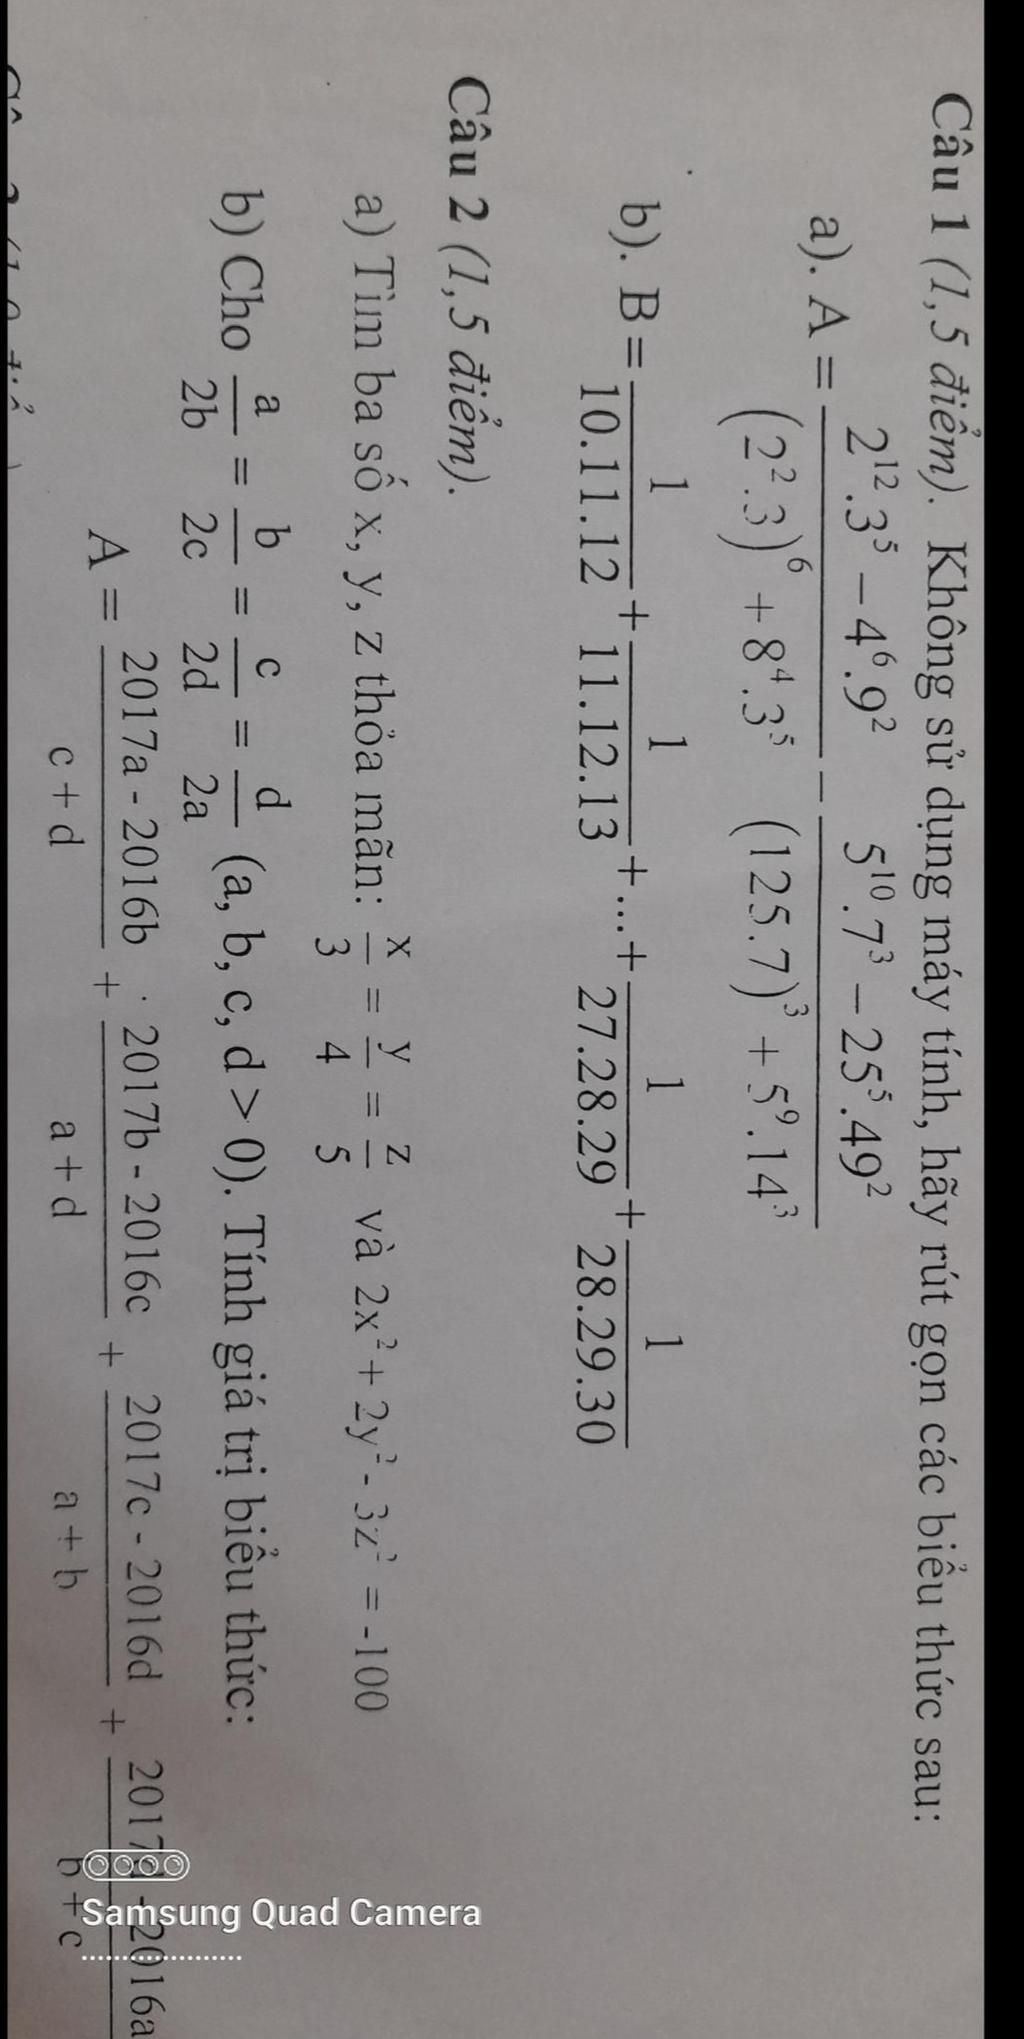 Câu 1 (1,5 điểm). Không sử dụng máy tính, hãy rút gọn các biểu thức sau:
a). A = \frac{2^{12}.3^5 - 4^6.9^2}{(2^2.3)^6 + 8^4.3^5} - \frac{5^{10}.7^3 - 25^5.49^2}{(125.7)^3 + 5^9.14^3}
b). B = \frac{1}{10.11.12} + \frac{1}{11.12.13} + ... + \frac{1}{27.28.29} + \frac{1}{28.29.30}
Câu 2 (1,5 điểm).
a) Tìm ba số x, y, z thỏa mãn: \frac{x}{3} = \frac{y}{4} = \frac{z}{5} và 2x² + 2y² - 3z² = -100
b) Cho \frac{a}{2b} = \frac{b}{2c} = \frac{c}{2d} = \frac{d}{2a} (a, b, c, d > 0). Tính giá trị biểu thức:
A = \frac{2017a - 2016b}{c + d} + \frac{2017b - 2016c}{a + d} + \frac{2017c - 2016d}{a + b} + \frac{2017d - 2016a}{b + c}
Samsung Quad Camera